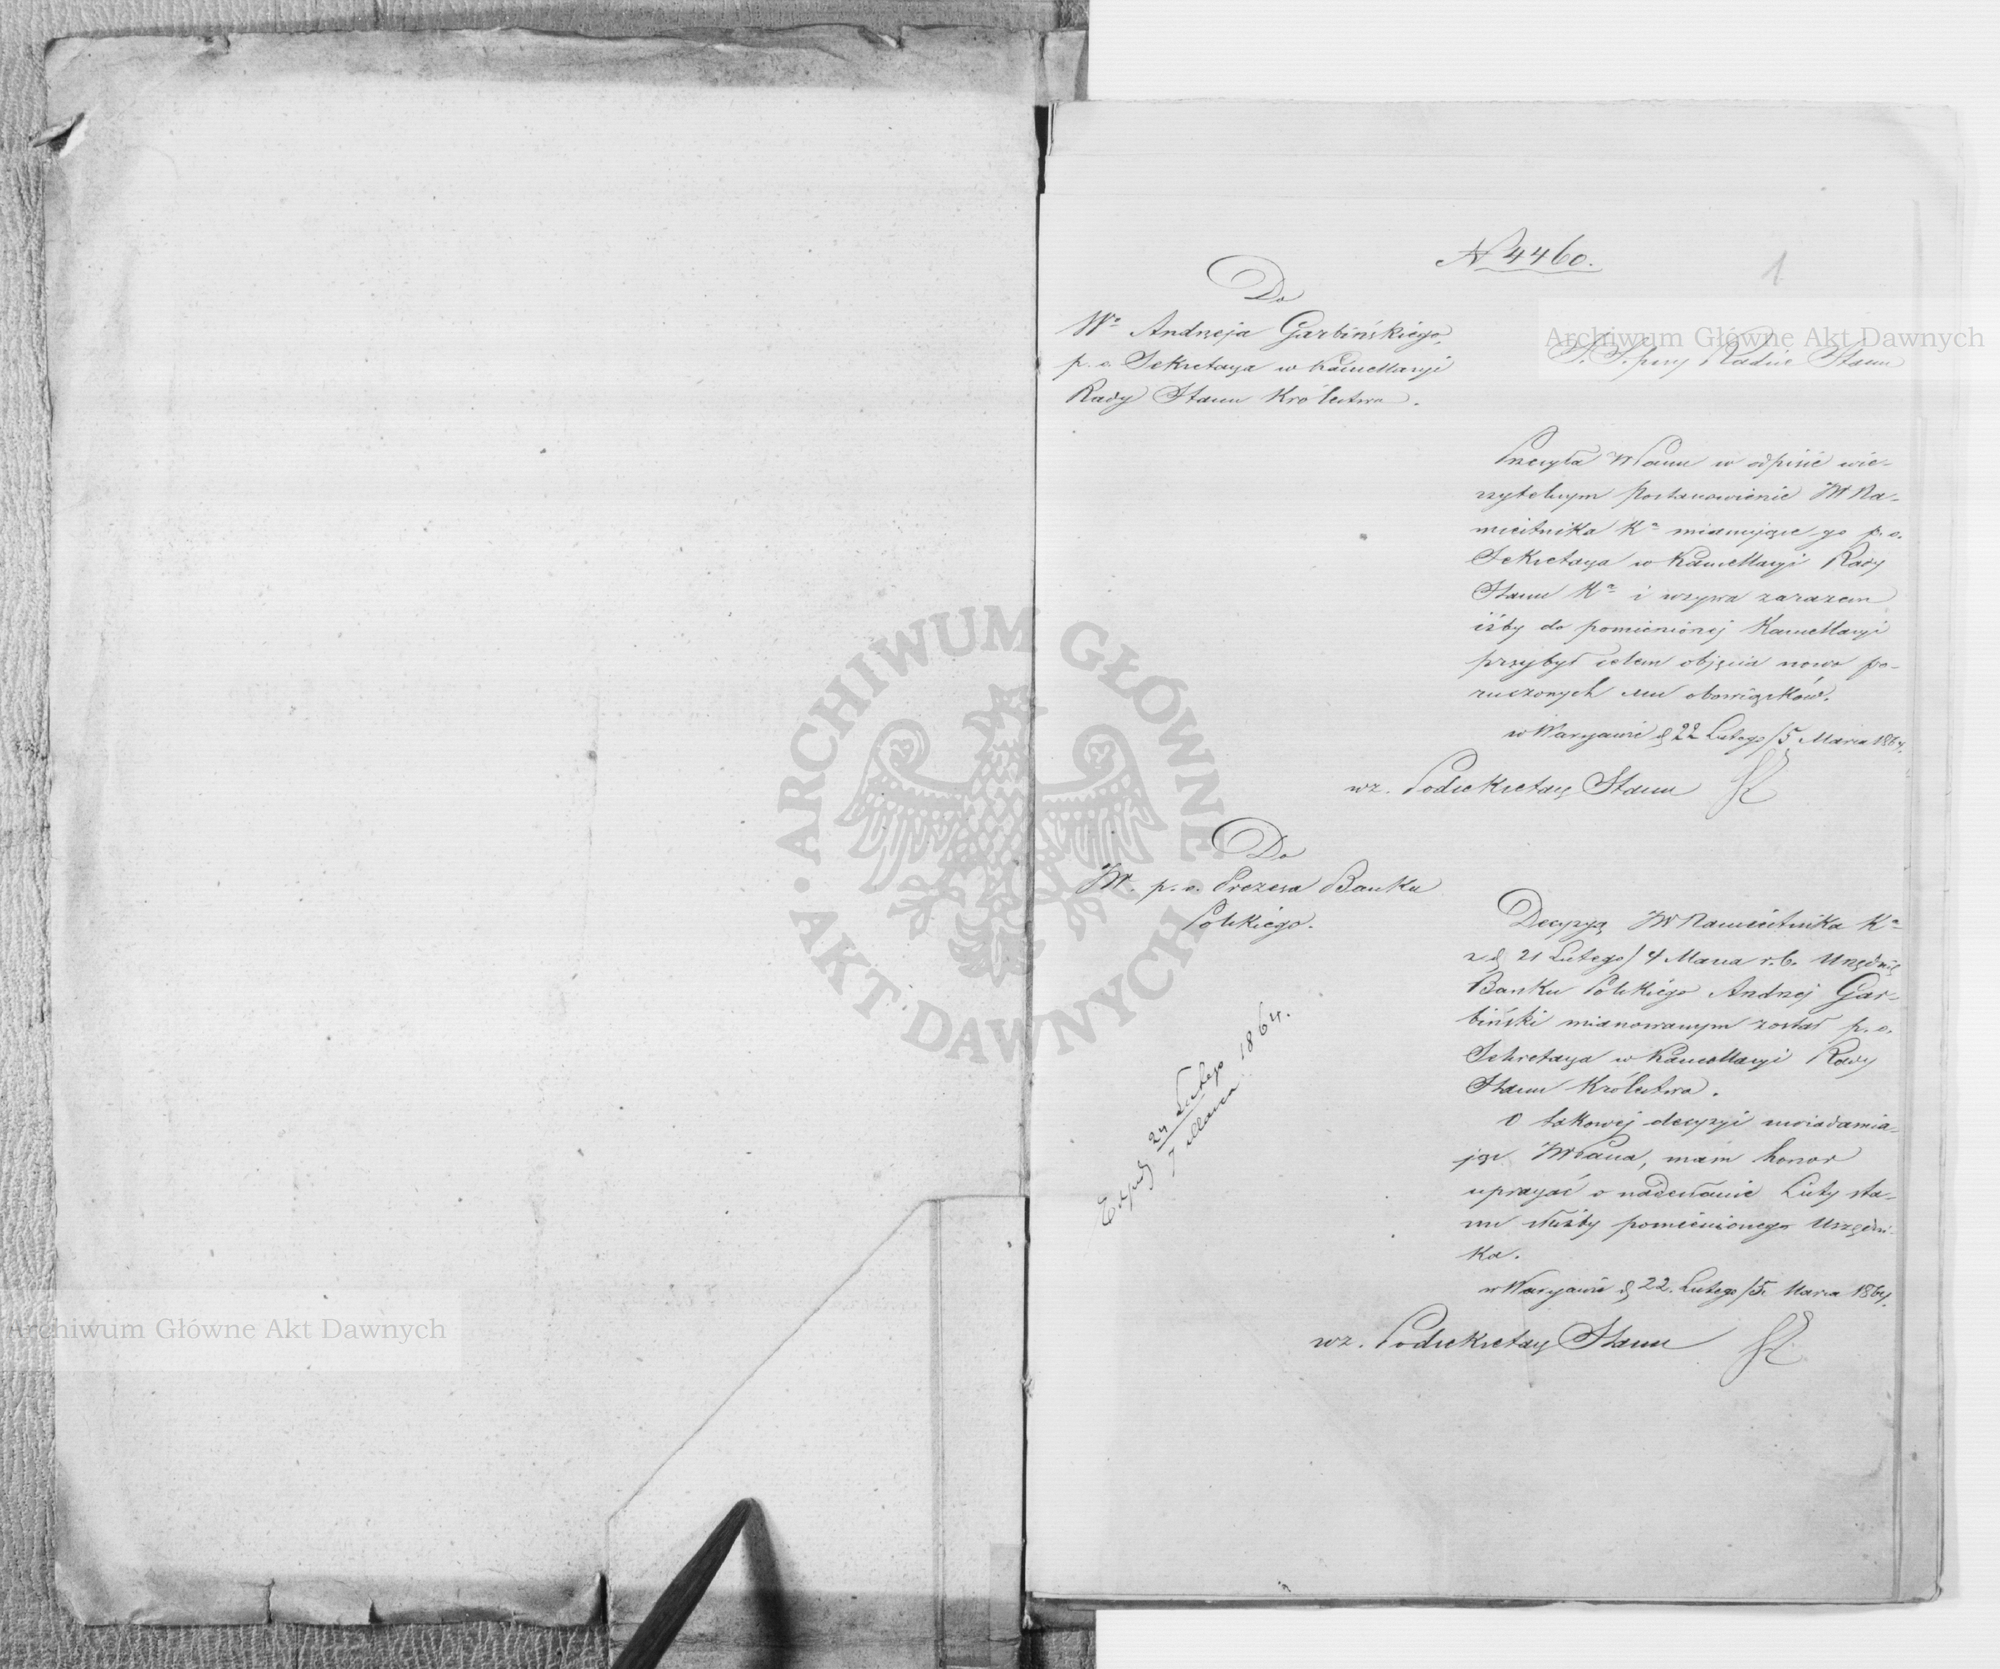 N 4460.
1
Do
Wº Andrzeja Garbińskiego,
p. o. Sekretarza w Kancellaryi
Rady Stanu Królestwa.
Archiwum Główne Akt Dawnych
S. S. przy Radzie Stanu
Przesyła WPanu w odpisie wie-
rzytelnym Postanowienie JW Na-
miestnika Kª mianujące go p. o.
Sekretarza w Kancellaryi Rady
Stanu Kª i wzywa zarazem
iżby do pomienionej Kancellaryi
przybył celem objęcia nowo po-
ruczonych mu obowiązków.
w Warszawie d 22 Lutego/5 Marca 1864.
wz. Podsekretarz Stanu
Do
JW. p. o. Prezesa Banku
Polskiego.
Decyzyą JW Namiestnika Kª
z d 21 Lutego/4 Marca r. b. Urzędnik
Banku Polskiego Andrzej Gar-
biński mianowanym został p. o.
Sekretarza w Kancellaryi Rady
Stanu Królestwa.
O takowej decyzyi uwiadamia-
jąc JWPana, mam honor
upraszać o nadesłanie Listy sta-
nu służby pomienionego Urzędni-
ka.
w Warszawie d 22. Lutego/5. Marca 1864.
wz. Podsekretarz Stanu
Exped 24 Lutego
7 Marca 1864.
ARCHIWUM GŁÓWNE · AKT DAWNYCH ·
Archiwum Główne Akt Dawnych